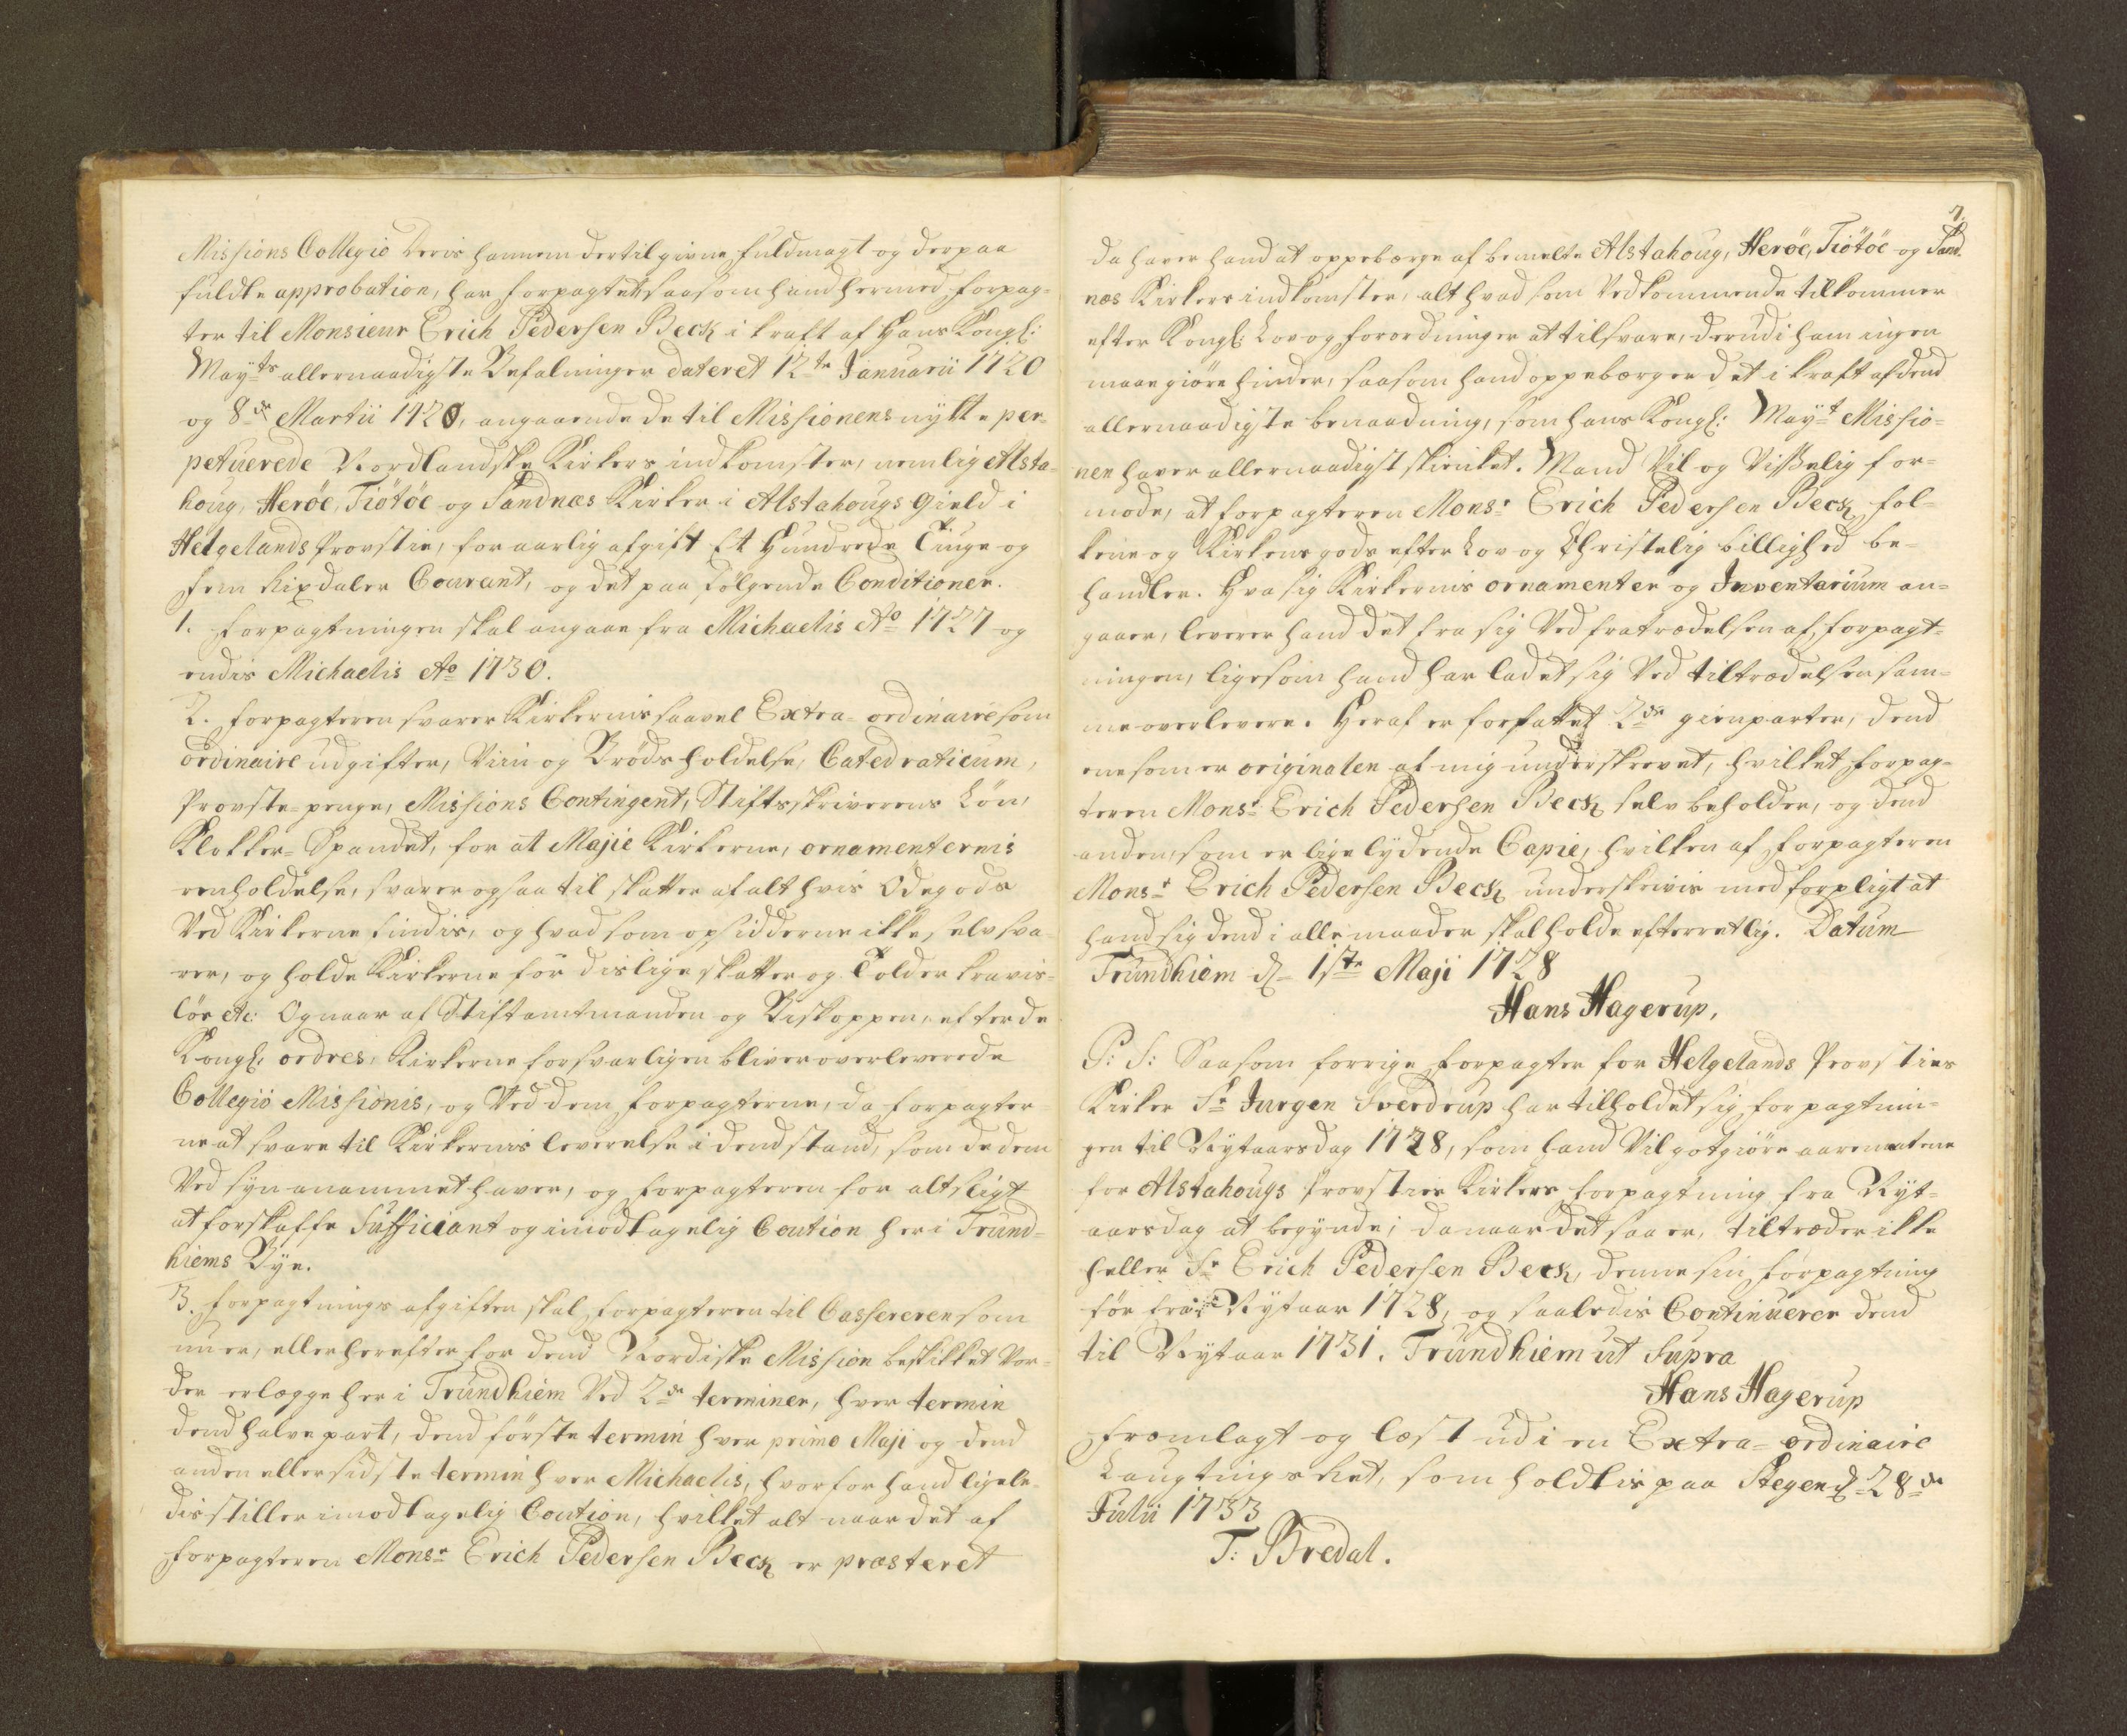 Missions Collegio Deris hannem dertil givne fuldmagt og derpaa
fuldte approbation, har forpagtet, saasom hand hermed forpag-
ter til Monsieur Erich Pedersen Beck i kraft af Hans Kongl:
Mayts allernaadigste Befalninger dateret 12te Januarii 1720
og 8de Martii 1720, angaaende de til Missionens nytte per-
petuerede Nordlandske Kirkers indkomster, nemlig Alsta-
houg, Herøe, Tiötöe og Sandnæs Kirker i Alstahougs gield i
Helgelands Provstie, for aarlig afgift Et Hundrede Tiuge og
fem Rixdaler Courant, og det paa følgende Conditioner.
1. Forpagtningen skal angaae fra Michaelis Ao 1727 og
endis Michaelis Ao 1730.
2. Forpagteren svarer Kirkernis saavel Extra-ordinaire som
ordinaire udgifter, Viin og Brøds holdelse, Catedraticum,
Provste-penge, Missions Contingent, Stiftsskriverens Løn,
Klokker-Spandet, for at Majie Kirkerne, ornamenternis
renholdelse, svarer og saa til skatter af alt hvis Ödegods
Ved Kirkerne findis, og hvad som opsidderne ikke selv sva-
rer, og holde Kirkerne for dislige skatter og Tolder kravis-
løs etc: Og naar af Stiftamtmanden og Biskoppen, efter de
Kongl: ordres, Kirkerne forsvarligen bliver overleverede
Collegio Missionis, og Ved dem forpagterne, da forpagter-
ne at svare til Kirkernis leverelse i dend stand, som de dem
Ved syn anammet haver, og forpagteren for alt sligt
at forskaffe Sufficiant og imodtagelig Caution her i Trund-
hiems Bye.
3. Forpagtnings afgiften skal forpagteren til Cassereren som
nu er, eller herefter for dend Nordiske Mission beskikket Vor-
der erlægge her i Trundhiem Ved 2de terminer, hver termin
dend halve part, dend første termin hver primo Maji og dend
anden eller sidste termin hver Michaelis, hvorfor hand ligele-
dis stiller imodtagelig Caution, hvilket alt naar det af
forpagteren Monsr Erich Pedersen Beck er præsteret
7.
da haver hand at oppebærge af bemelte Alstahoug, Herøe, Tiötöe og Sand-
næs Kirkers indkomster, alt hvad som Vedkommende tilkommer
efter Kongl: Lov og forordninger at tilsvare, derudi ham ingen
maae giøre hinder, saasom hand oppebærger det i kraft af dend
allernaadigste benaadning, som hans Kongl: Mayt Missio-
nen haver allernaadigst skienket. Mand Vil og Visselig for-
mode, at forpagteren Monsr Erich Pedersen Beck fol-
kene og Kirkens gods efter Lov og Christelig billighed be-
handler. Hva sig Kirkernis ornamenter og Inventarium an-
gaaer, leverer hand det fra sig Ved fratrædelsen af forpagt-
ningen, ligesom hand har ladet sig Ved tiltrædelsen sam-
me overlevere. Heraf er forfattet 2de gienparter, dend
ene som er originalen af mig underskrevet, hvilket forpag-
teren Monsr Erich Pedersen Beck selv beholder, og dend
anden, som er lige lydende Copie, hvilken af forpagteren
Monsr Erich Pedersen Beck underskrivis med forpligt at
hand sig dend i alle maader skal holde efterretlig. Datum
Trundhiem d 1ste Maji 1728
Hans Hagerup.
P: S: Saasom forrige forpagter for Helgelands Provsties
Kirker Sr Jurgen Sverdrup har tilholdet sig forpagtnin-
gen til Nytaarsdag 1728, som hand Vil gotgiøre
for Alstahougs Provsties Kirkers forpagtning fra Nyt-
aarsdag at begynde; da naar det saa er, tiltræder ikke
heller Sr Erich Pedersen Beck, denne sin forpagtning
før fra Nytaar 1728, og saaledis Continuerer dend
til Nytaar 1731. Trundhiem ut Supra
Hans Hagerup
Fremlagt og læst udi en Extra-ordinaire
Laugtings Ret, som holdtis paa Stegen d 28de
Julii 1733
T: Bredal.